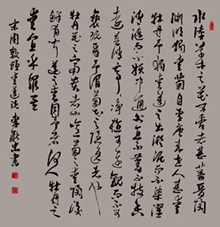 水陸草木之花可愛者甚蕃晉陶
淵明獨愛菊自李唐來世人甚愛
牡丹予獨愛蓮之出淤泥而不染濯
清漣而不妖中通外直不蔓不枝香
遠益清亭亭淨植可遠觀而不可
褻玩焉予謂菊花之隱逸者也牡
丹花之富貴者也蓮花之君子者也噫菊之愛陶後
鮮有聞蓮之愛同予者何人牡丹之
愛宜乎眾矣
宋周敦頤愛蓮說 李 書